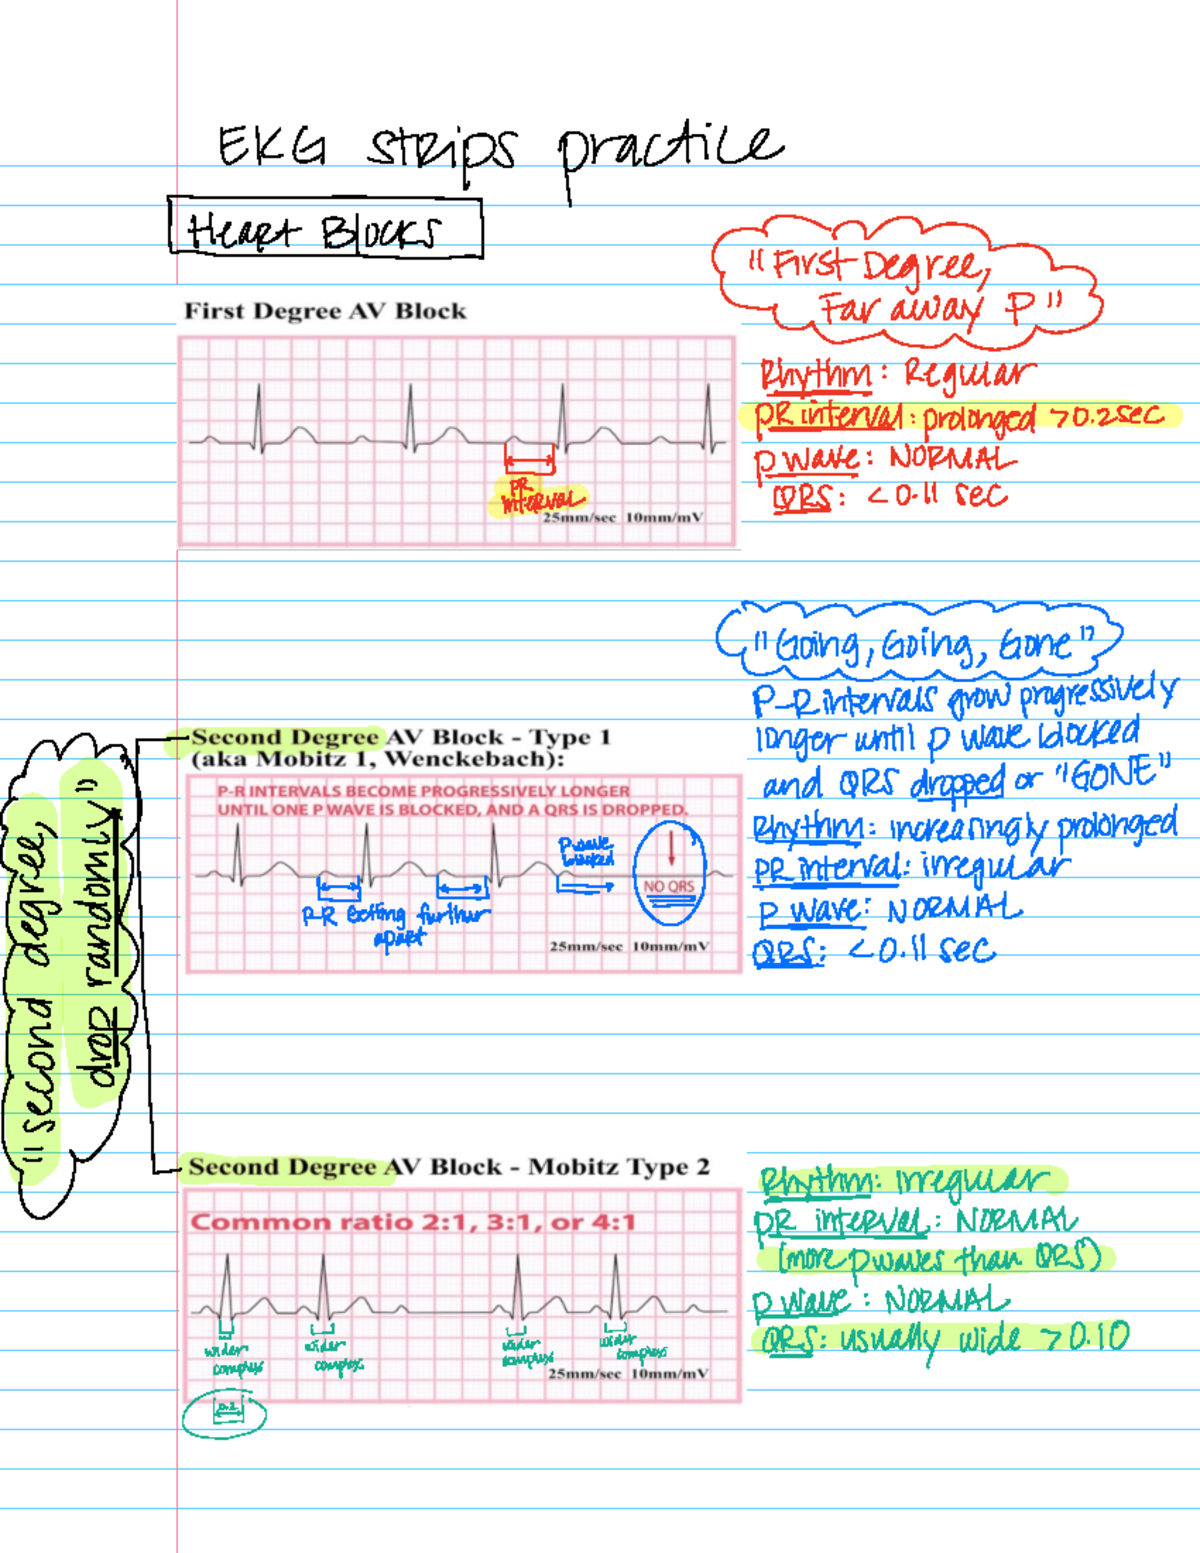 EKG strips practice
Heart Blocks
First Degree AV Block
"First Degree,
Far away P"
Rhythm: Regular
PR interval: prolonged >0.2sec
P wave: NORMAL
QRS: <0.11 sec
PR
interval
25mm/sec 10mm/mV
"Going, Going, Gone"
P-R intervals grow progressively
longer until p wave blocked
and QRS dropped or "GONE"
Rhythm: increasingly prolonged
PR interval: irregular
P wave: NORMAL
QRS: <0.11 sec
Second Degree AV Block - Type 1
(aka Mobitz 1, Wenckebach):
P-R INTERVALS BECOME PROGRESSIVELY LONGER
UNTIL ONE P WAVE IS BLOCKED, AND A QRS IS DROPPED.
P wave
blocked
NO QRS
P-R getting further
apart
25mm/sec 10mm/mV
"second degree,
drop randomly"
Second Degree AV Block - Mobitz Type 2
Common ratio 2:1, 3:1, or 4:1
wider
complex
wider
complex
wider
complex
wider
complex
25mm/sec 10mm/mV
Rhythm: irregular
PR interval: NORMAL
(more p waves than QRS)
P wave: NORMAL
QRS: usually wide >0.10